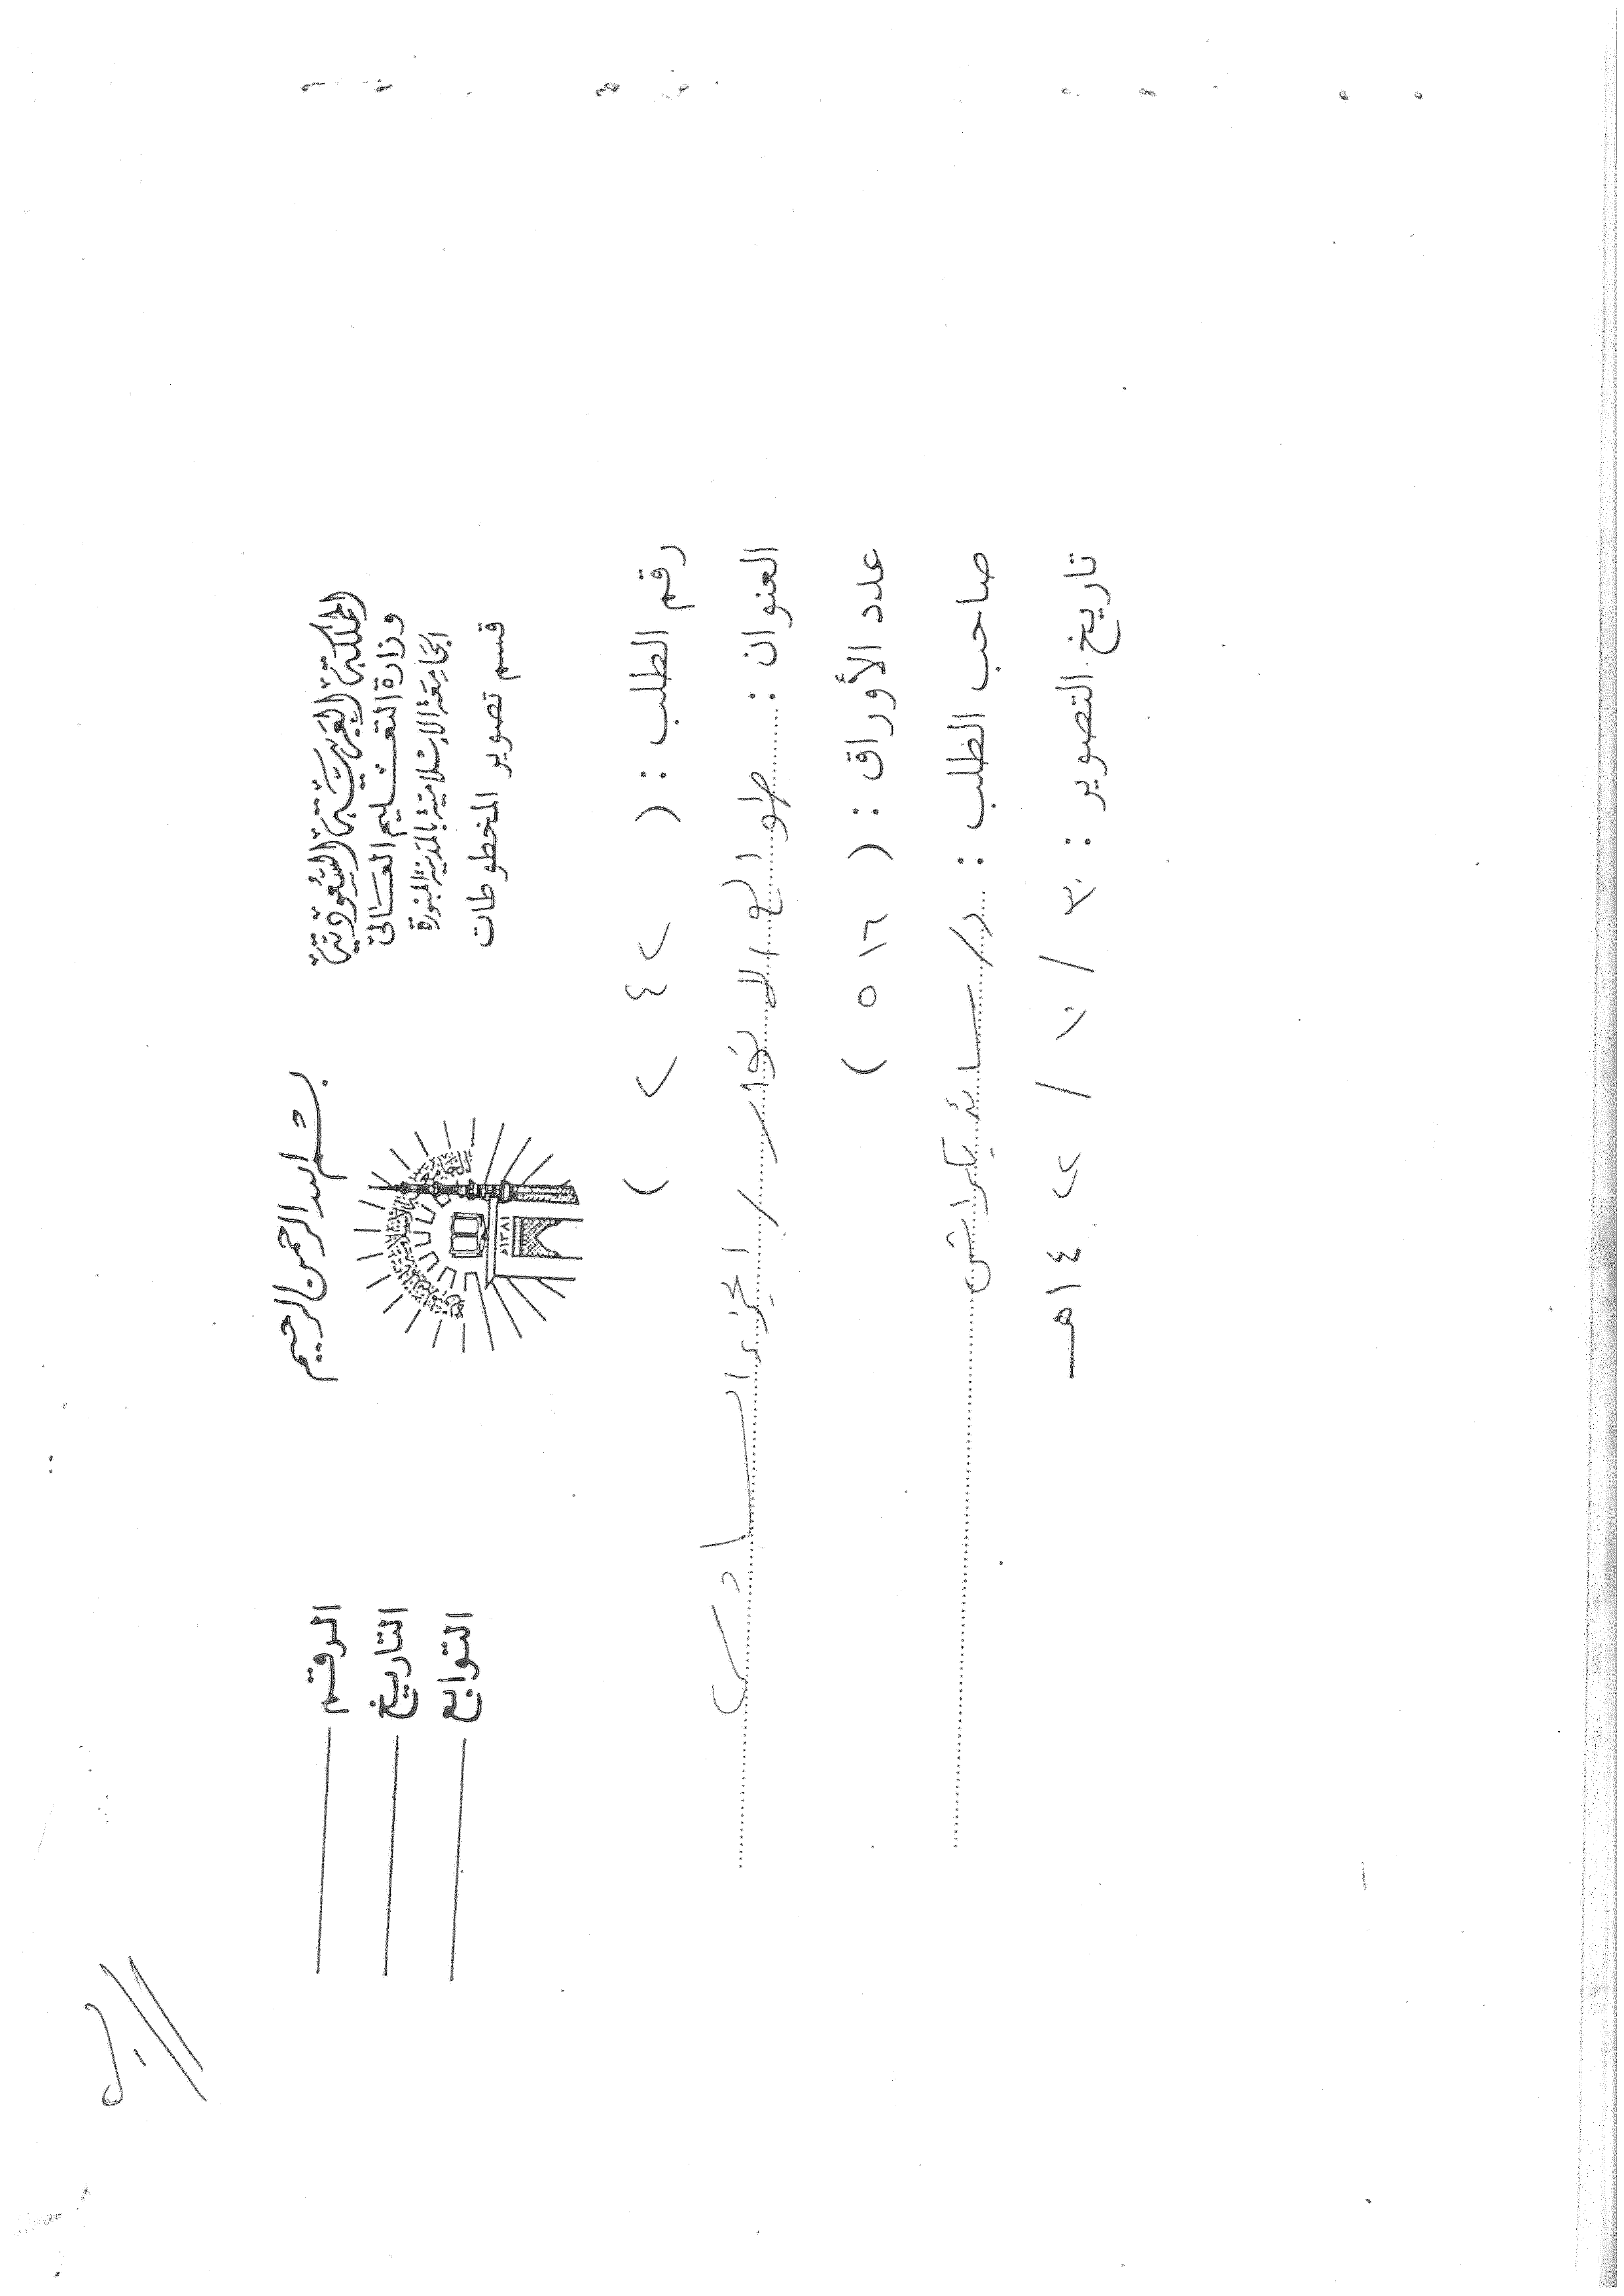 بسم الله الرحمن الرحيم
المملكة العربية السعودية
وزارة التعليم العالي
الجامعة الإسلامية بالمدينة المنورة
قسم تصوير المخطوطات
الرقم
التاريخ
التوابع
رقم الطلب : ( ٢٤٢ )
العنوان : طوالع الأنوار / الجزء السادس
عدد الأوراق : ( ٥١٦ )
صاحب الطلب : د / سائد بكداش
تاريخ التصوير : ٣٠ / ١٠ / ١٤٢٠هـ